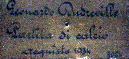 Leonardo Dudreville
Partita di calcio
acquisto 1924